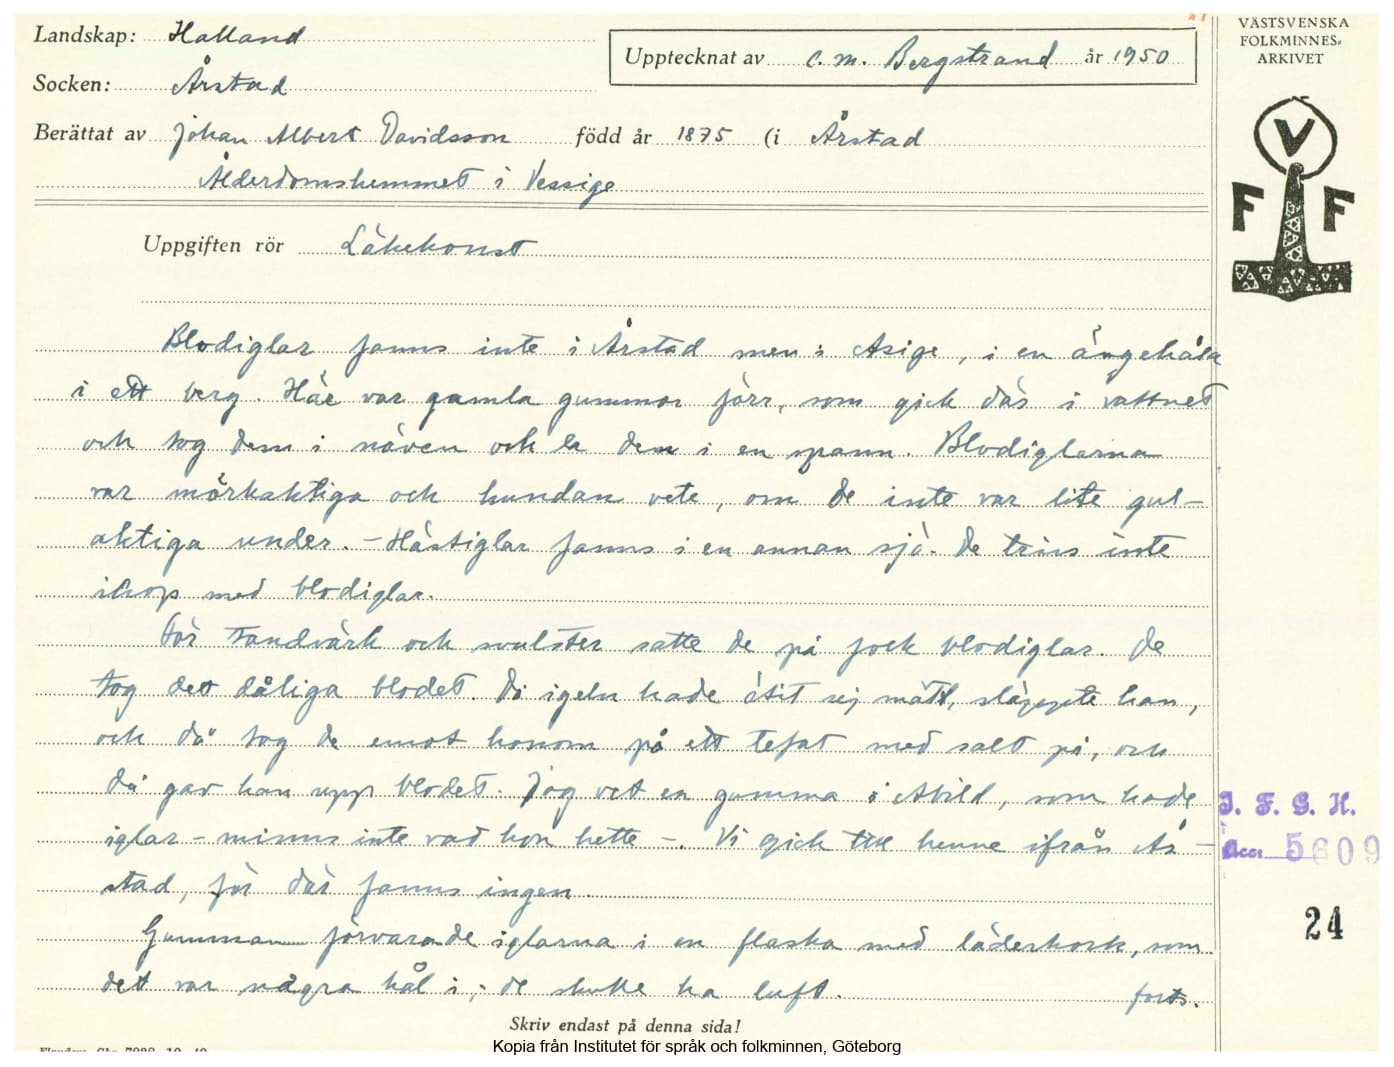 Landskap: Halland
Socken: Årstad
Upptecknat av C. M. Bergstrand år 1950
Berättat av Johan Albert Davidsson född år 1875 (i Årstad
Ålderdomshemmet i Vessige
Uppgiften rör Läkekonst
Blodiglar fanns inte i Årstad men i Asige, i en ängehåla
i ett berg. Här var gamla gummor förr, som gick där i vattnet
och tog dem i näven och la dem i en spann. Blodiglarna
var mörkaktiga och kundan vete, om de inte var lite gul-
aktiga under. – Hästiglar fanns i en annan sjö. De trivs inte
ihop med blodiglar.
För tandvärk och svulster satte de på fock blodiglar. De
tog dett dåliga blodet. Då igeln hade ätit sej mätt, släppte han,
och då tog de emot honom på ett tefat med salt på, och
då gav han upp blodet. Jag vet en gumma i Abild, som hade
iglar – minns inte vad hon hette –. Vi gick till henne ifrån År-
stad, för där fanns ingen.
Gumman förvarade iglarna i en flaska med läderkork, som
dett var några hål i; de skulle ha luft. forts.
Skriv endast på denna sida!
Kopia från Institutet för språk och folkminnen, Göteborg
VÄSTSVENSKA
FOLKMINNES-
ARKIVET
V
F F
I. F. G. H.
Acc. 5609
24